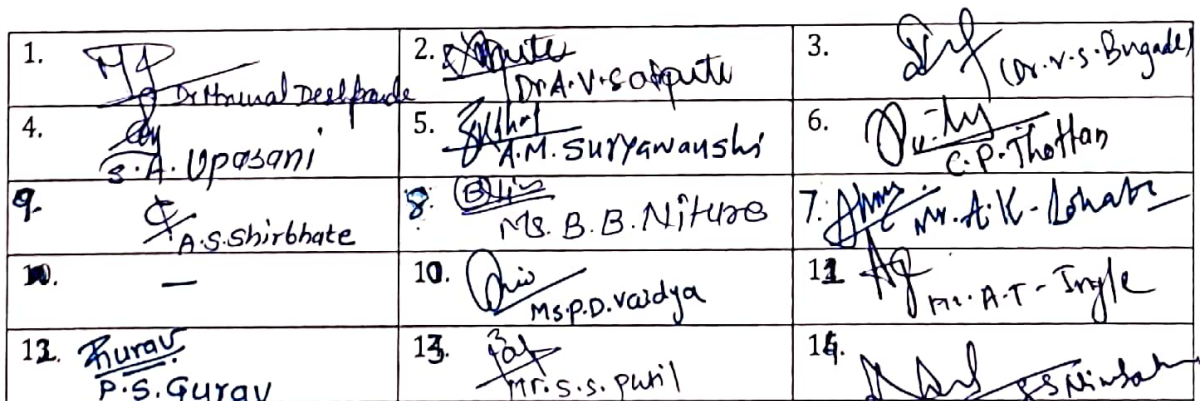 1. Dr Mrunal Deshpande
2. Dr. A. V. Satpute
3. (Dr. V. S. Bugade)
4. S. A. Upasani
5. A.M. Suryawanshi
6. C. P. Thottan
9. A.S. Shirbhate
8. Ms. B. B. Niture
7. Mr. A. K.
—
10. Ms. P. D. Vaidya
11 Mr. A. T. Ingle
12. Gurav
P. S. Gurav
13. Mr. S. S. Patil
14.